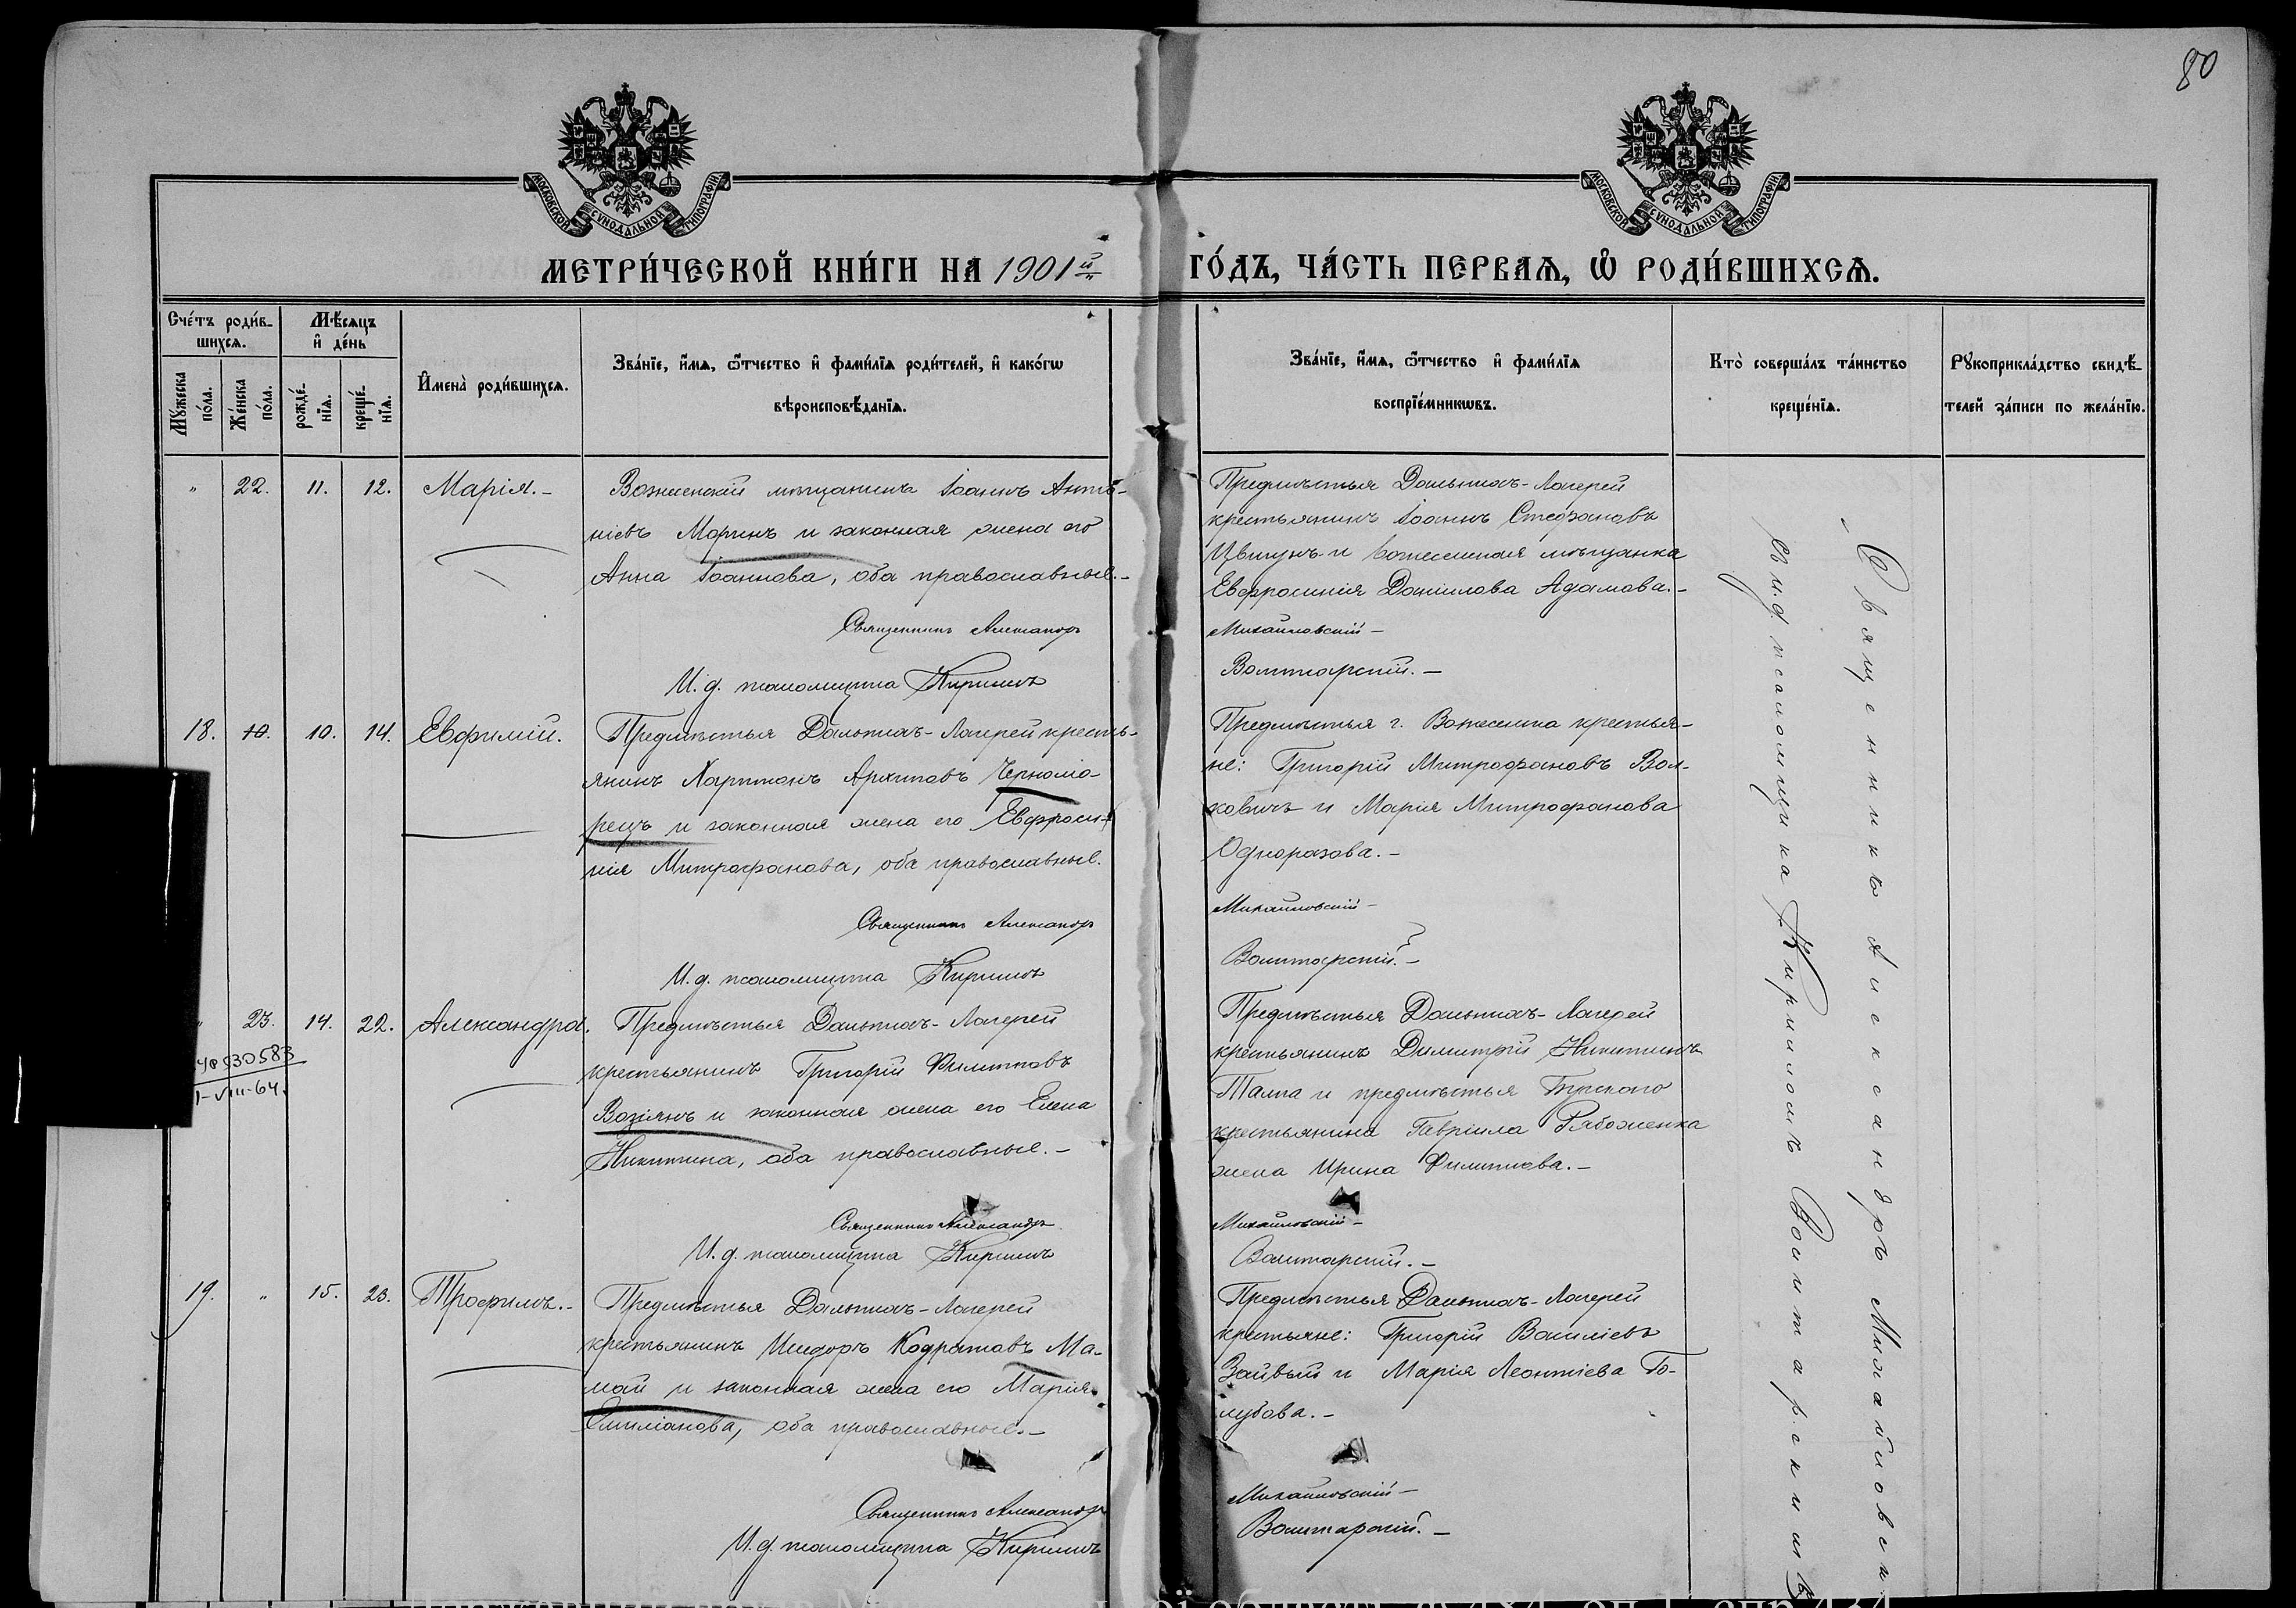 80
МОСКОВСКОЙ СѴНОДАЛЬНОЙ ТИПОГРАФІИ
МОСКОВСКОЙ СѴНОДАЛЬНОЙ ТИПОГРАФІИ
МЕТРИ́ЧЕСКОЙ КНИ́ГИ НА 1901й
ГО́ДЪ, ЧА́СТЬ ПЕРВАѦ, Ѡ҆ РОДИ́ВШИХСѦ.
Сче́тъ роди́в-
шихсѧ.
Мѣ́сѧцъ
и҆ де́нь
Мꙋ́жеска
по́ла.
Же́нска
по́ла.
рожде́-
нїѧ.
креще́-
нїѧ.
И҆мена̀ роди́вшихсѧ.
Зва́нїе, и҆́мѧ, ѻ҆́тчество и҆ фами́лїѧ роди́телей, и҆ како́гѡ
вѣроисповѣ́данїѧ.
Зва́нїе, и҆́мѧ, ѻ҆́тчество и҆ фами́лїѧ
воспрїе́мникѡвъ.
Кто̀ соверша́лъ та́инство
креще́нїѧ.
Рꙋкоприкла́дство свидѣ́-
телей за́писи по жела́нїю.
" 22. 11. 12. Марія.-
Вознесенскій мѣщанинъ Іоаннъ Анто-
ніевъ Маринъ и законная жена его
Анна Іоаннова, оба православные.-
Священникъ Александръ
И. д. псаломщика Кириллъ
Предмѣстья Дальнихъ-Лагерей
крестьянинъ Іоаннъ Стефановъ
Цвигунъ и вознесенская мѣщанка
Евфросинія Даніилова Адамова.-
Михайловскій-
Войтарскій.-
18. 10. 14. Евфимій.
Предмѣстья Дальнихъ-Лагерей кресть-
янинъ Харитонъ Архиповъ Черномо-
рецъ и законная жена его Евфроси-
нія Митрофанова, оба православные.
Священникъ Александръ
И. д. псаломщика Кириллъ
Предмѣстья г. Вознесенска крестья-
не: Григорій Митрофановъ Вол-
ковичъ и Марія Митрофанова
Одноразова.-
Михайловскій-
Войтарскій.-
" 23. 14. 22. Александра.
530583
VIII-64.
Предмѣстья Дальнихъ-Лагерей
крестьянинъ Григорій Филипповъ
Возіянъ и законная жена его Елена
Никитина, оба православные.-
Священникъ Александръ
И. д. псаломщика Кириллъ
Предмѣстья Дальнихъ-Лагерей
крестьянинъ Димитрій Никитинъ
Талпа и предмѣстья Бугского
крестьянина Гавріила Рябоженка
жена Ирина Филиппова.-
Михайловскій-
Войтарскій.-
19. " 15. 23. Трофимъ.-
Предмѣстья Дальнихъ-Лагерей
крестьянинъ Исидоръ Кодратовъ Ма-
май и законная жена его Марія
Емиліанова, оба православные.-
Священникъ Александръ
И. д. психомщика Кириллъ
Предмѣстья Дальнихъ-Лагерей
крестьяне: Григорій Василіевъ
и Марія Леонтіева Го-
лубова.-
Михайловскій-
Войтарскій.-
Священникъ Александръ Михайловскій
съ и. д. псаломщика Кирилломъ Войтарскимъ